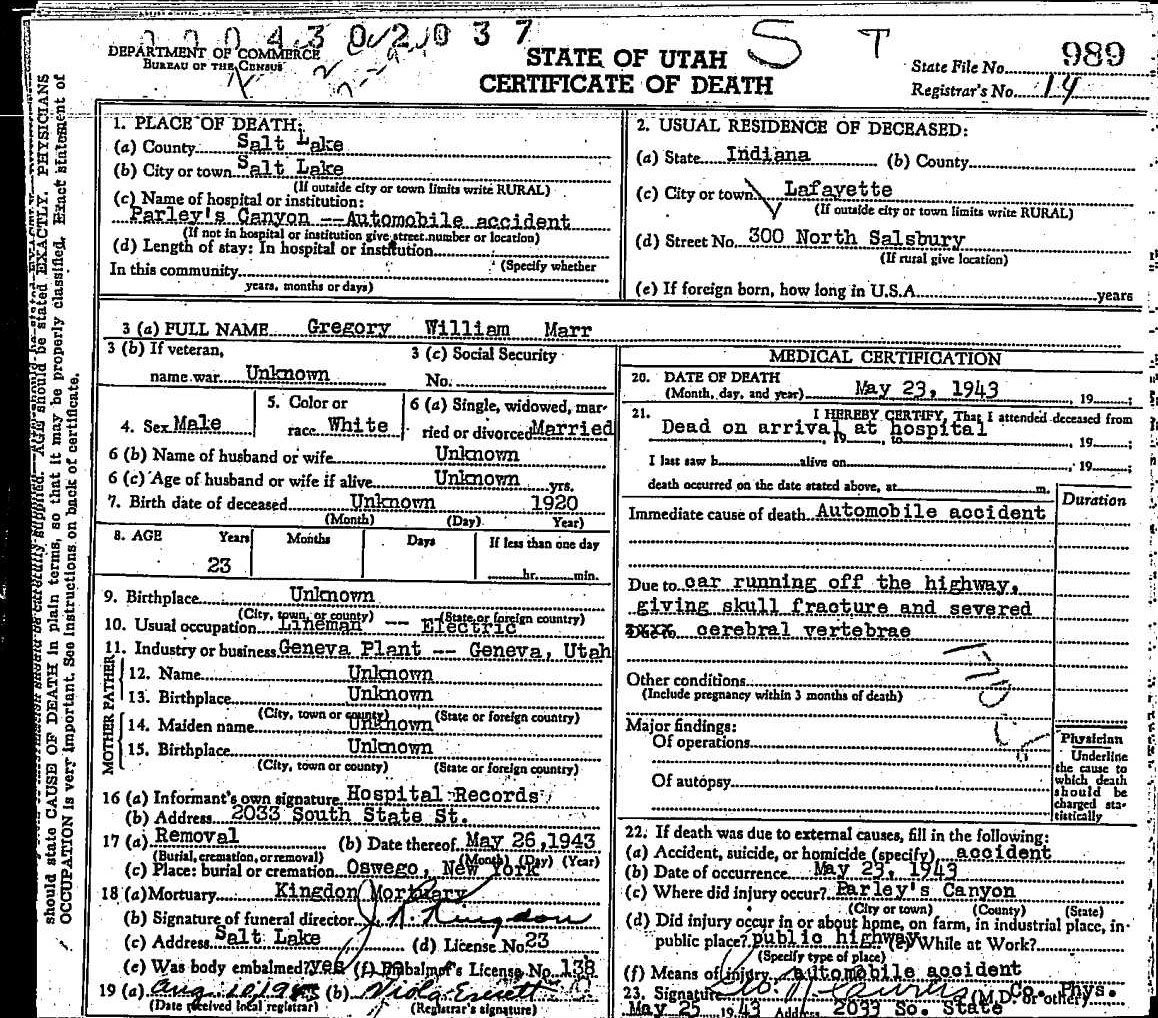 37
S T
DEPARTMENT OF COMMERCE
BUREAU OF THE CENSUS
STATE OF UTAH
CERTIFICATE OF DEATH
State File No. 989
Registrar's No. 14
should state CAUSE OF DEATH in plain terms, so that it may be properly classified. Exact statement of
OCCUPATION is very important. See instructions on back of certificate.
1. PLACE OF DEATH:
(a) County Salt Lake
(b) City or town Salt Lake
(If outside city or town limits write RURAL)
(c) Name of hospital or institution:
Parley's Canyon --Automobile accident
(If not in hospital or institution give street number or location)
(d) Length of stay: In hospital or institution
(Specify whether
In this community
years, months or days)
2. USUAL RESIDENCE OF DECEASED:
(a) State Indiana (b) County
(c) City or town Lafayette
(If outside city or town limits write RURAL)
(d) Street No. 300 North Salsbury
(If rural give location)
(e) If foreign born, how long in U.S.A. years
3 (a) FULL NAME Gregory William Marr
3 (b) If veteran, name war Unknown
3 (c) Social Security No.
4. Sex Male
5. Color or race White
6 (a) Single, widowed, married or divorced Married
6 (b) Name of husband or wife Unknown
6 (c) Age of husband or wife if alive Unknown yrs.
7. Birth date of deceased Unknown 1920
(Month) (Day) Year)
8. AGE Years Months Days If less than one day
23 hr. min.
9. Birthplace Unknown
(City, town, or county) (State or foreign country)
10. Usual occupation Lineman -- Electric
11. Industry or business Geneva Plant -- Geneva, Utah
FATHER
12. Name Unknown
13. Birthplace Unknown
(City, town or county) (State or foreign country)
MOTHER
14. Maiden name Unknown
15. Birthplace Unknown
(City, town or county) (State or foreign country)
16 (a) Informant's own signature Hospital Records
(b) Address 2033 South State St.
17 (a) Removal (b) Date thereof May 26,1943
(Burial, cremation, or removal) (Month) (Day) (Year)
(c) Place: burial or cremation Oswego, New York
18 (a) Mortuary Kingdon Mortuary
(b) Signature of funeral director Kingdon
(c) Address Salt Lake (d) License No. 23
(e) Was body embalmed? yes (f) Embalmer's License No. 138
19 (a) Aug 10, 1943 (b) Viola Everett
(Date received local registrar) (Registrar's signature)
MEDICAL CERTIFICATION
20. DATE OF DEATH
(Month, day, and year) May 23, 1943, 19 ;
21. I HEREBY CERTIFY, That I attended deceased from
Dead on arrival at hospital, 19 ;
I last saw h alive on , 19 ;
death occurred on the date stated above, at m.
Duration
Immediate cause of death Automobile accident
Due to car running off the highway,
giving skull fracture and severed
cerebral vertebrae
Other conditions
(Include pregnancy within 3 months of death)
Major findings:
Of operations
Of autopsy
Physician
Underline
the cause to
which death
should be
charged sta-
tistically
22. If death was due to external causes, fill in the following:
(a) Accident, suicide, or homicide (specify) accident
(b) Date of occurrence May 23, 1943
(c) Where did injury occur? Parley's Canyon
(City or town) (County) (State)
(d) Did injury occur in or about home, on farm, in industrial place, in
public place? public highway (e) While at Work?
(Specify type of place)
(f) Means of injury automobile accident
23. Signature Co. Phys.
(M.D. or other)
1943 Address 2033 So. State